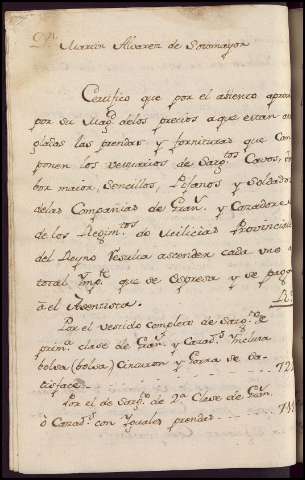 Dn. Martin Alvarez de Sotomayor
Certifico que por el asiento apro
por su Magd. delos precios aque estan
glados las prendas y fornituras que Com
ponen los vestuarios de Sargtos Cavos,
bor maior, Sencillos, Pifanos y Soldado
delas Compañias de Gran.s y Cazadores
de los Regimtos de Milicias Provinciale
del Reyno resulta ascender cada uno a
total impte que se expresa y se pago
á el Asentista.
Por el vestido completo de Sargto de
prima clase de Gran.s y Cazads inclusa
bolsa (bolsa) Cinturon y Gorra se sa
tisface
Por el de Sargto de 2a Clase de Gran.
ò Cazads con Yguales prendas